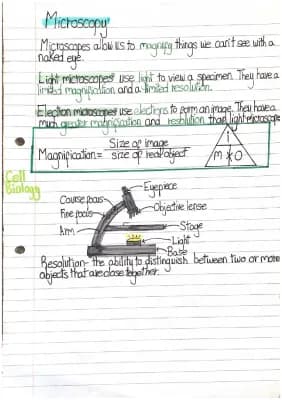 Microscopy
Microscopes allow us to magnify things we can't see with a
naked eye.
Light microscopes use light to view a specimen. They have a
limited magnification and a limited resolution.
Electron microscopes use electrons to form an image. They have a
much greater magnification and resolution than light microscope
Magnification = Size of image
size of real object
I
M X O
Cell
Biology
Eyepiece
Course focus
Objective lense
Fine focus
Arm
Stage
Light
Base
Resolution- the ability to distinguish between two or more
objects that are close together.